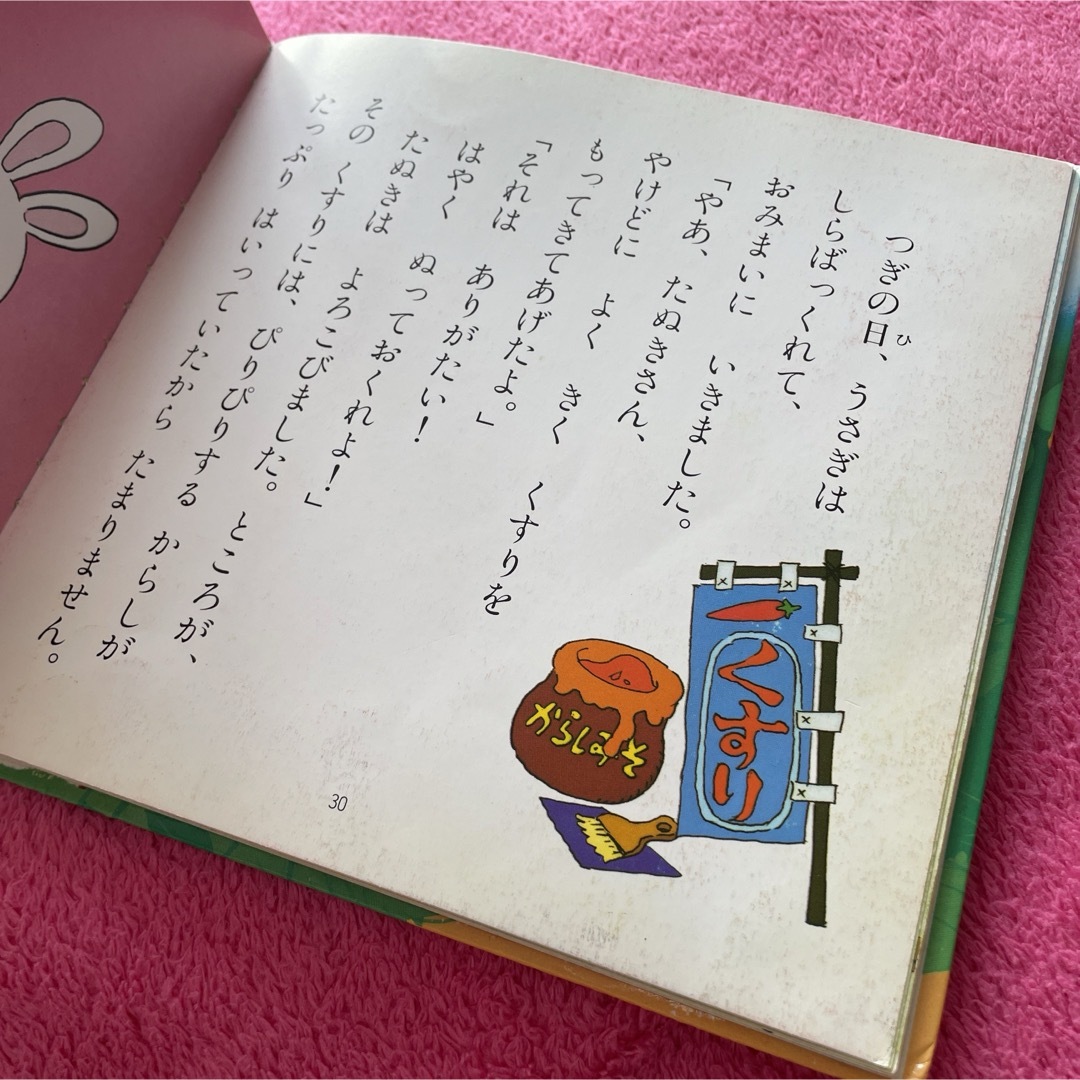 つぎの日、　うさぎは
ひ
しらばっくれて、
おみまいに　いきました。
「やあ、　たぬきさん、
やけどに　よく　きく　くすりを
もってきてあげたよ。」
「それは　ありがたい！
はやく　ぬっておくれよ！」
たぬきは　よろこびました。　ところが、
その　くすりには、　ぴりぴりする　からしが
たっぷり　はいっていたから　たまりません。
くすり
からしみそ
30